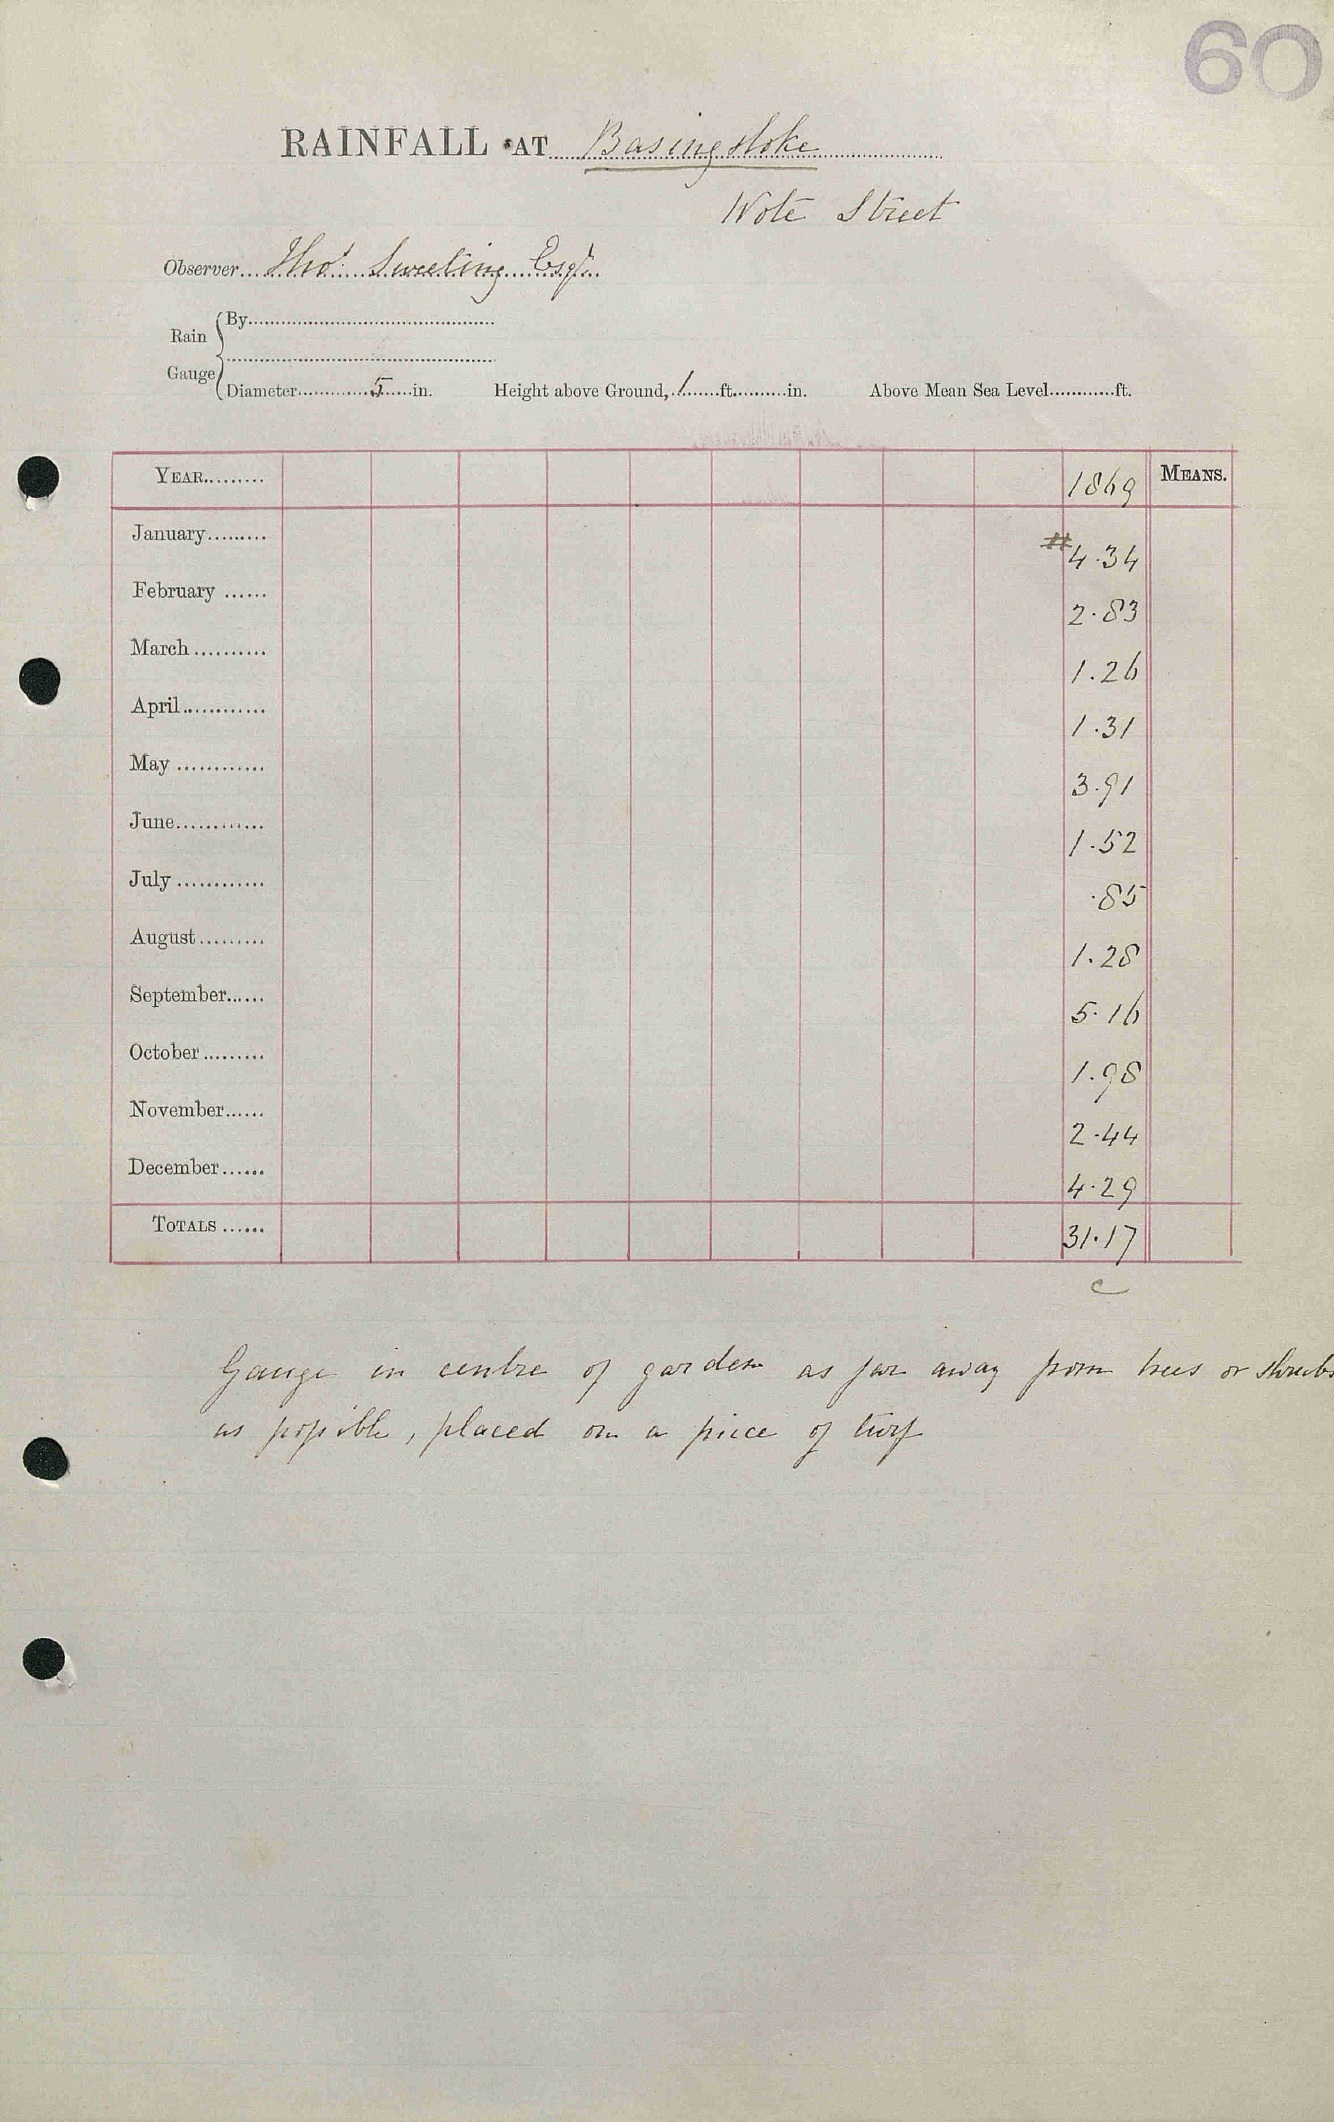 60
RAINFALL AT Basingstoke
Wote Street
Observer Thos Sweeting Esqr
Rain Gauge
By
Diameter 5 in. Height above Ground, 1 ft. in. Above Mean Sea Level ft.
YEAR 1869 MEANS.
January # 4.34
February 2.83
March 1.26
April 1.31
May 3.91
June 1.52
July .85
August 1.28
September 5.16
October 1.98
November 2.44
December 4.29
TOTALS 31.17
c
Gauge in centre of garden as far away from trees or shrubs
as possible, placed on a piece of turf